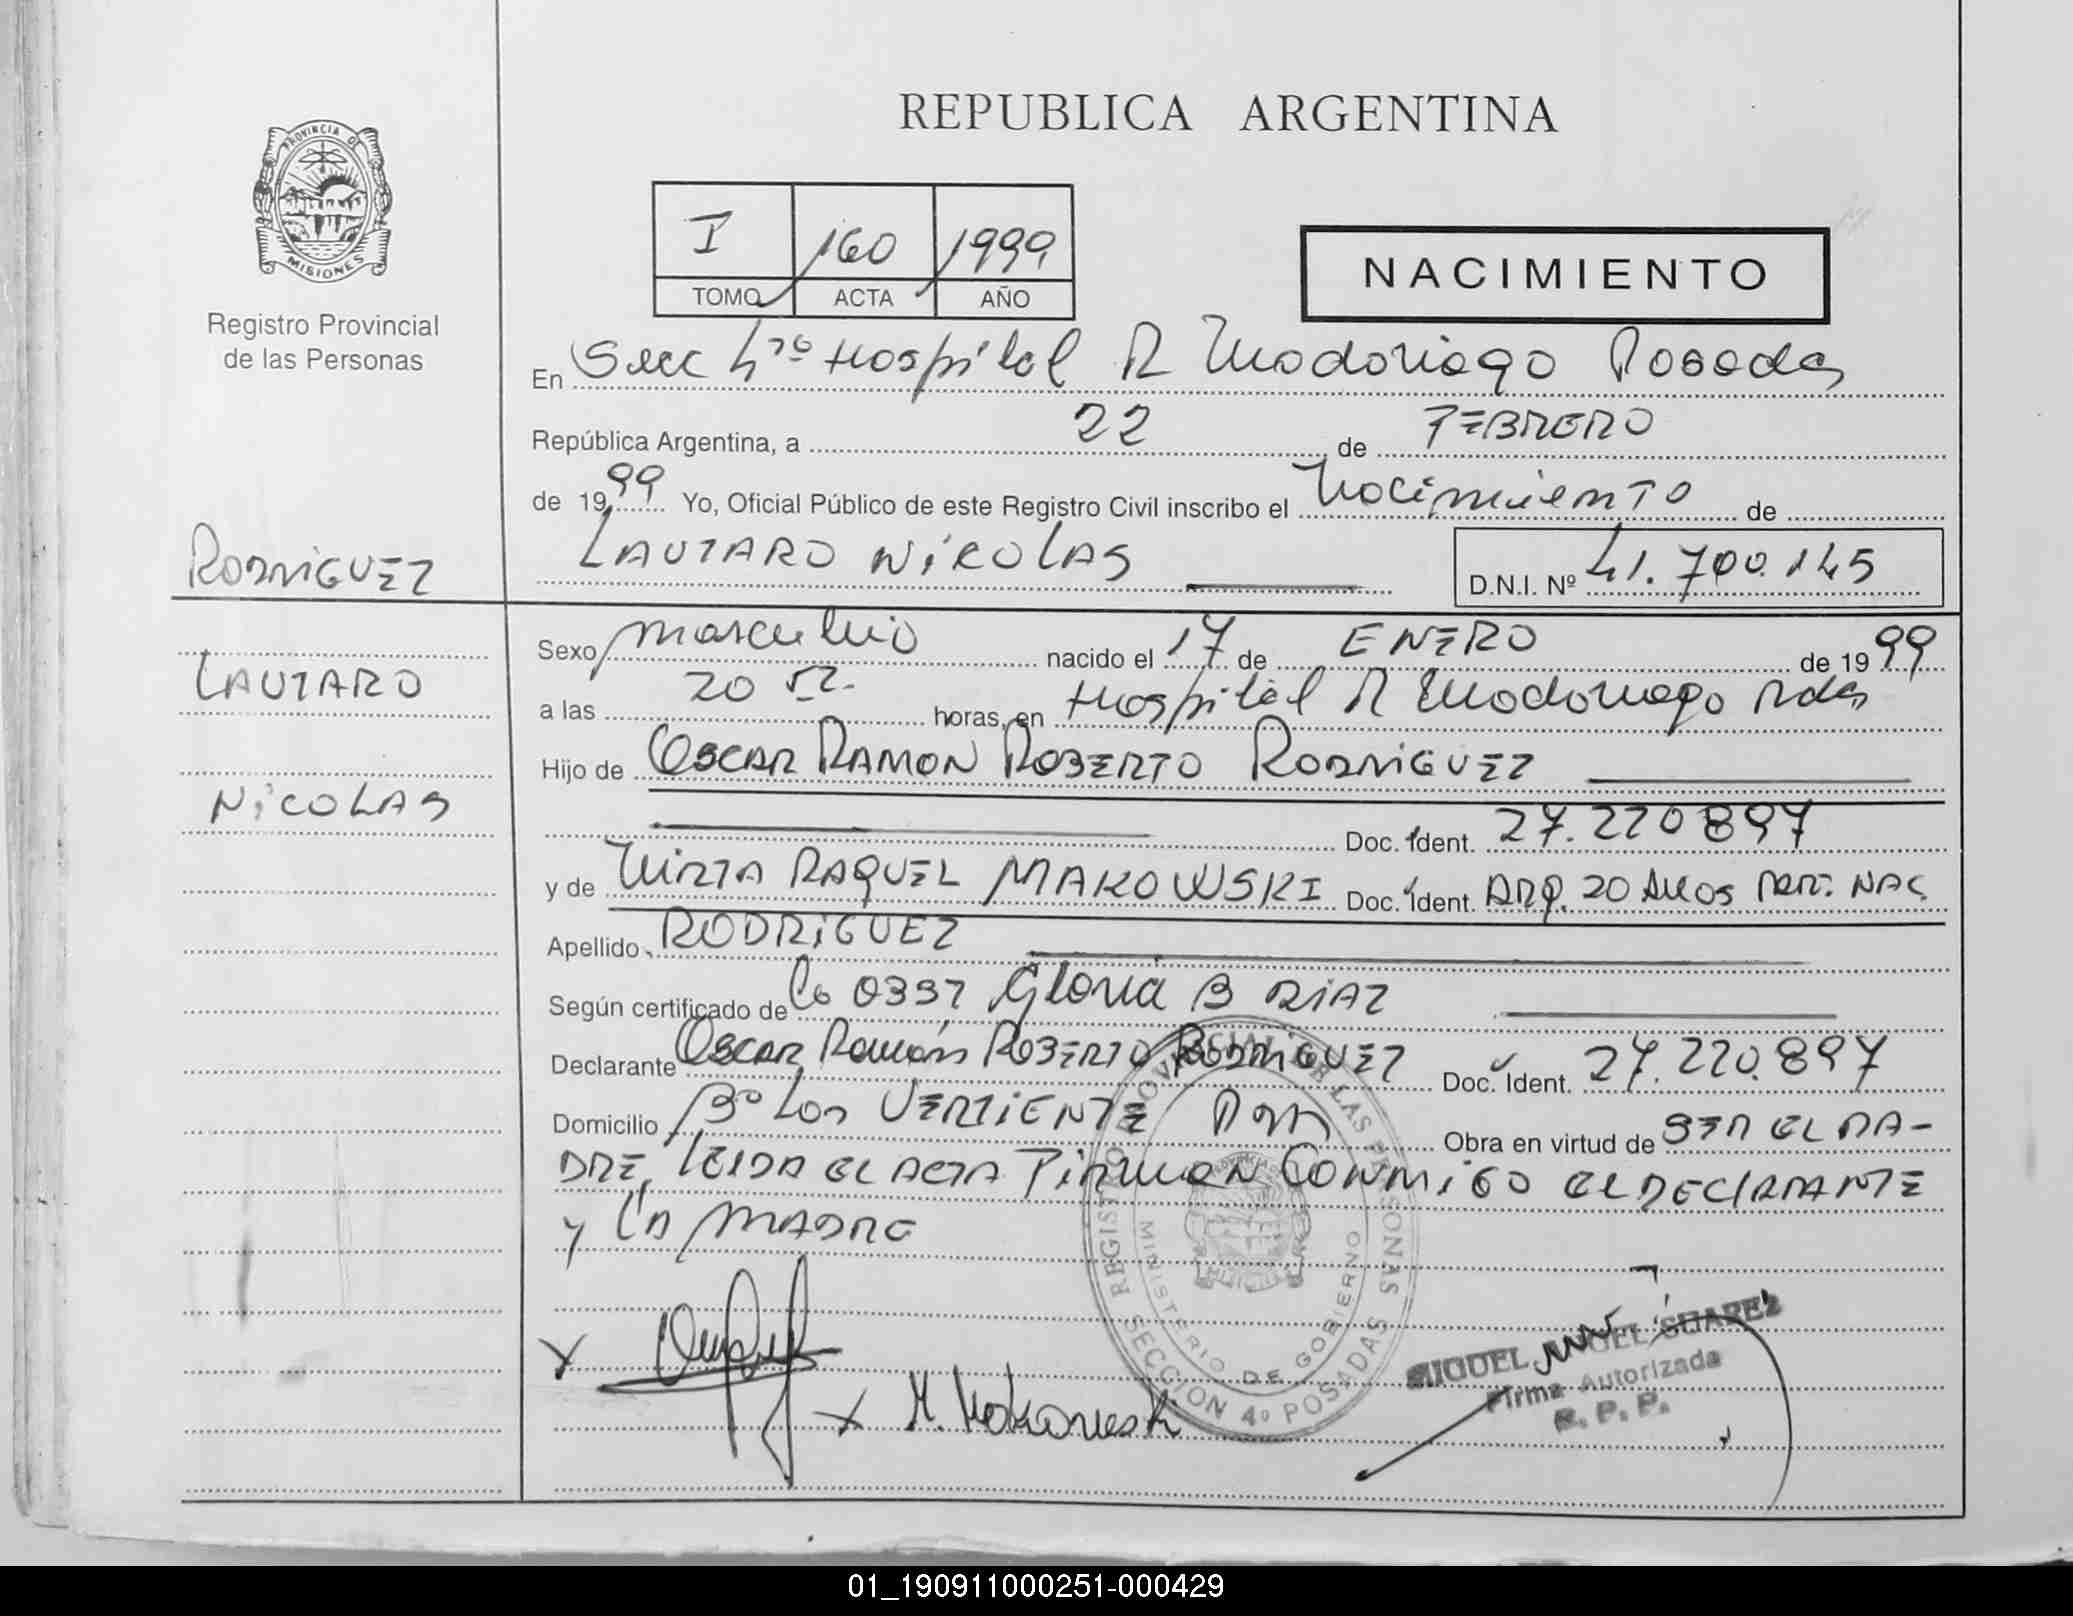 PROVINCIA DE
MISIONES
Registro Provincial
de las Personas
RODRIGUEZ
LAUTARO
NICOLAS
REPUBLICA ARGENTINA
I 160 1999
TOMO ACTA AÑO
NACIMIENTO
En Secc 4ta Hospital R Madariaga Posadas
República Argentina, a 22 de FEBRERO
de 1999 Yo, Oficial Público de este Registro Civil inscribo el Nacimiento de
LAUTARO NICOLAS D.N.I. Nº 41.700.145
Sexo masculino nacido el 17 de ENERO de 1999
a las 20 horas, en Hospital R Madariaga Pdas
Hijo de OSCAR RAMON ROBERTO RODRIGUEZ
Doc. Ident. 27.220.897
y de MIRTA RAQUEL MAKOWSKI Doc. Ident. ARG. 20 AÑOS PART. NAC.
Apellido RODRIGUEZ
Según certificado de Co 0337 Gloria B DIAZ
Declarante OSCAR Ramón ROBERTO RODRIGUEZ Doc. Ident. 27.220.897
Domicilio Bº Los VERTIENTE Obra en virtud de SER EL PA-
DRE, LEIDA EL ACTA FIRMAN CONMIGO EL DECLARANTE
y LA MADRE
REGISTRO PROVINCIAL DE LAS PERSONAS
MINISTERIO DE GOBIERNO
SECCION 4º POSADAS
M. Makowski
MIGUEL ANGEL SUAREZ
Firma Autorizada
R. P. P.
01_190911000251-000429